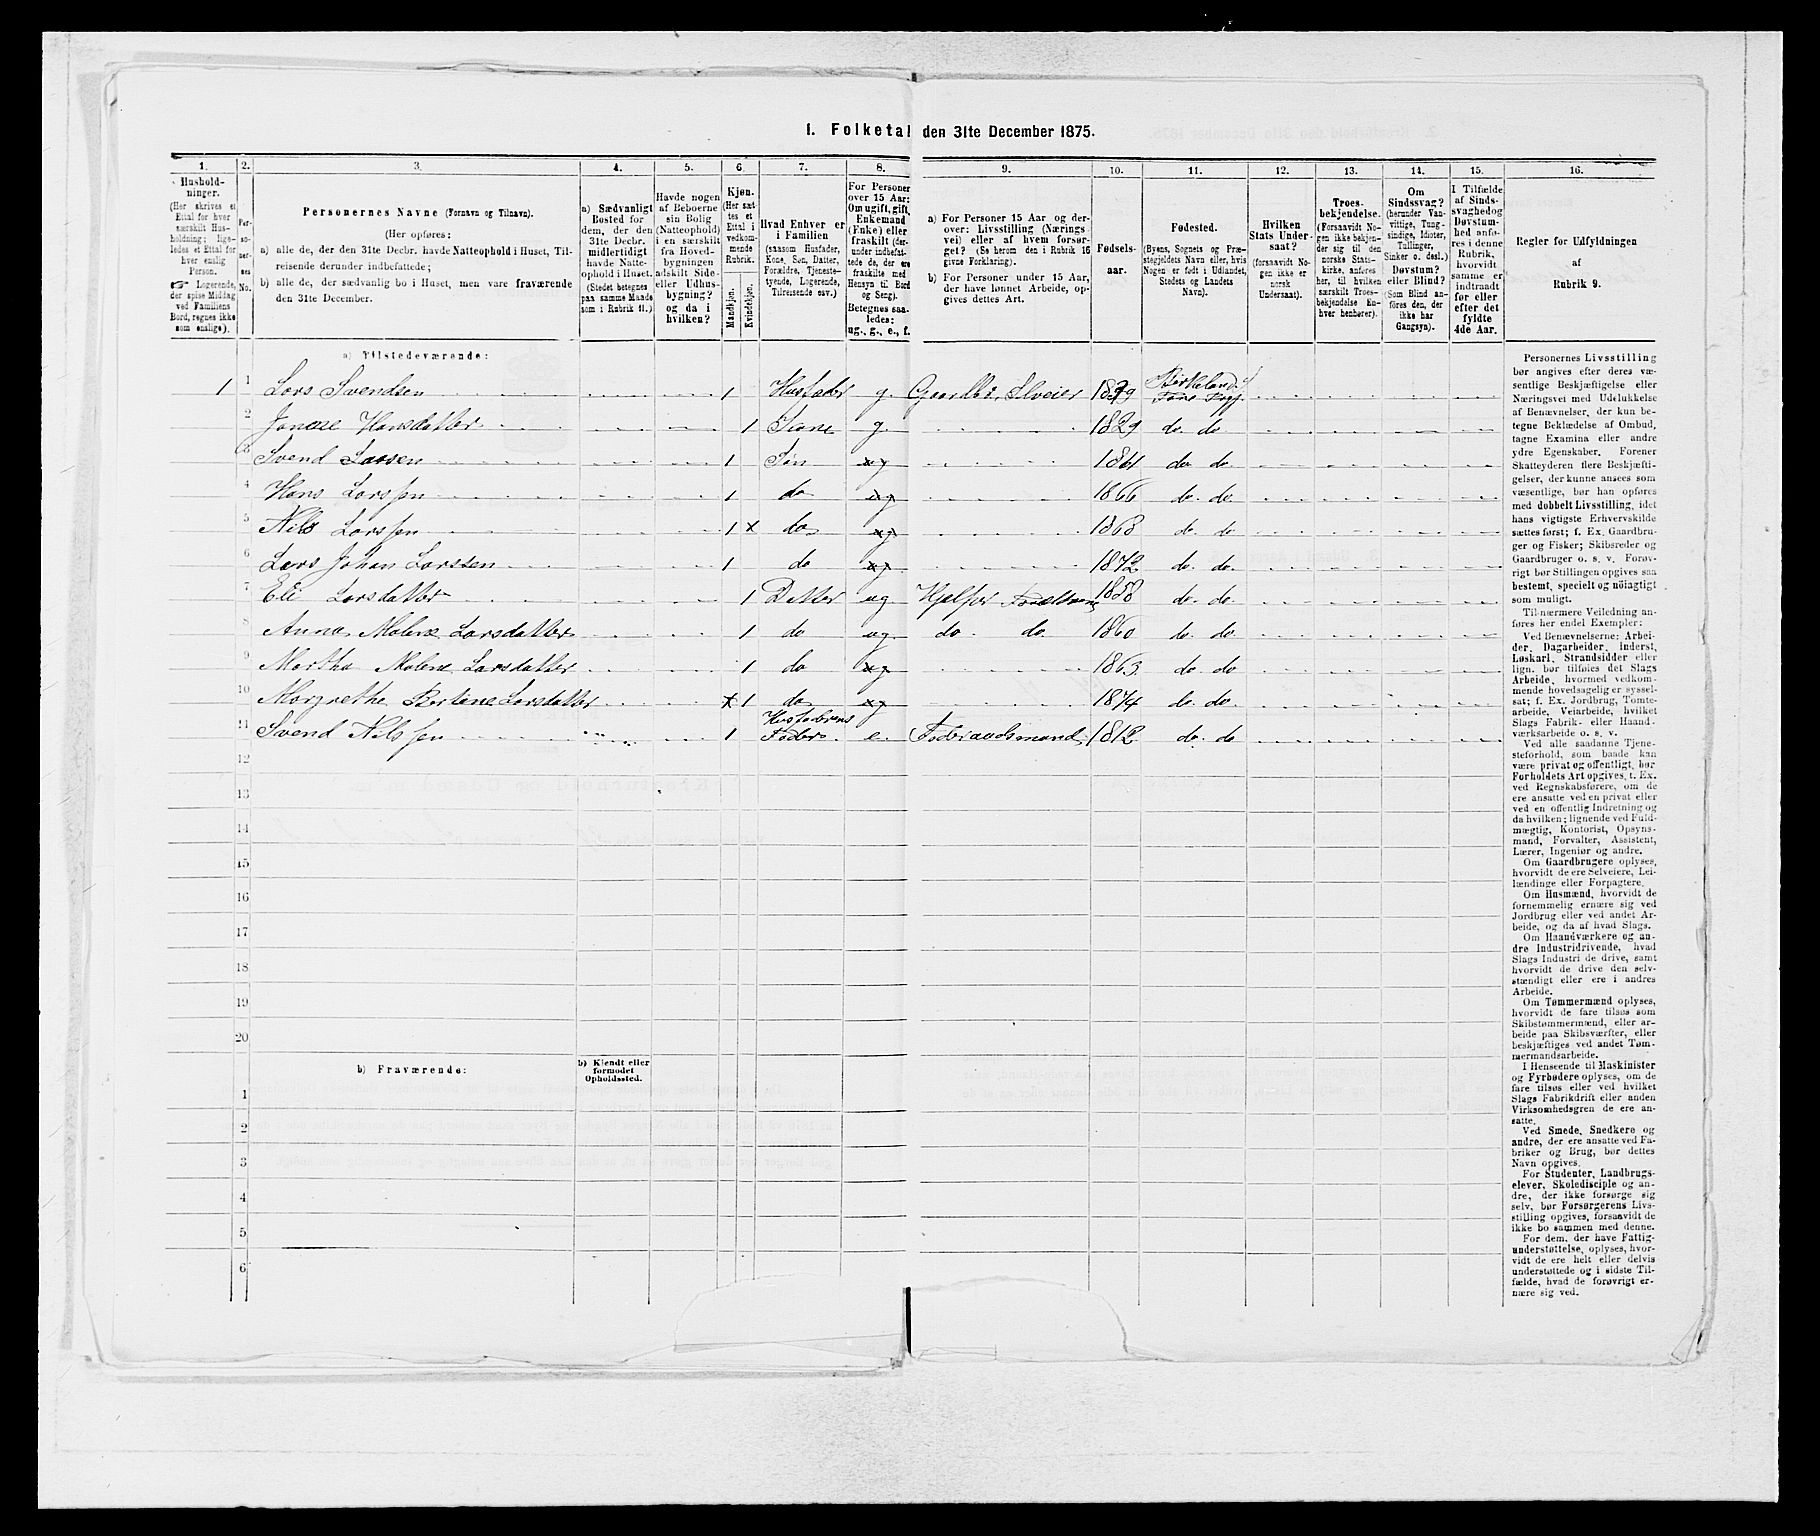 1. Folketal den 31te December 1875.
1. 2. 3. 4. 5. 6. 7. 8. 9. 10. 11. 12. 13. 14. 15. 16.
Hushold-
ninger.
(Her skrives et
Ettal for hver
særskilt Hus-
holdning; lige-
ledes et Ettal for
hver enslig
Person.
☞ Logerende,
der spise Middag
ved Familiens
Bord, regnes ikke
som enslige).
Per-
so-
ner-
nes
No.
Personernes Navne (Fornavn og Tilnavn).
(Her opføres:
a) alle de, der den 31te Decbr. havde Natteophold i Huset, Til-
reisende derunder indbefattede;
b) alle de, der sædvanlig bo i Huset, men vare fraværende
den 31te December.
a) Sædvanligt
Bosted for
dem, der den
31te Decbr.
midlertidigt
havde Natte-
ophold i Huset.
(Stedet betegnes
paa samme Maade
som i Rubrik 11.)
Havde nogen
af Beboerne
sin Bolig
(Natteophold)
i en særskilt
fra Hoved-
bygningen
adskilt Side-
eller Udhus-
bygning?
og da i
hvilken?
Kjøn.
(Her sæt-
tes et
Ettal i
vedkom-
mende
Rubrik.
Mandkjøn.
Kvindekjøn.
Hvad Enhver er
i Familien
(saasom Husfader,
Kone, Søn, Datter,
Forældre, Tjeneste-
tyende, Logerende,
Tilreisende osv.)
For Personer
over 15 Aar:
Om ugift, gift,
Enkemand
(Enke) eller
fraskilt (der-
under indbefat-
tede de, der ere
fraskilte med
Hensyn til Bord
og Seng).
Betegnes saa-
ledes:
ug., g., e., f.
a) For Personer 15 Aar og der-
over: Livsstilling (Nærings-
vei) eller af hvem forsør-
get? (Se herom den i Rubrik 16
givne Forklaring).
b) For Personer under 15 Aar,
der have lønnet Arbeide, op-
gives dettes Art.
Fødsels-
aar.
Fødested.
(Byens, Sognets og Præ-
stegjeldets Navn eller, hvis
Nogen er født i Udlandet,
Stedets og Landets
Navn).
Hvilken
Stats Under-
saat?
(forsaavidt No-
gen ikke er
norsk
Undersaat).
Troes-
bekjendelse.
(Forsaavidt No-
gen ikke bekjen-
der sig til den
norske Stats-
kirke, anføres
her, til hvilken
særskilt Troes-
bekjendelse En-
hver henhører).
Om
Sindssvag?
(herunder Van-
vittige, Tung-
sindige, Idioter,
Tullinger,
Sinker o. desl.)
Døvstum?
eller Blind?
(Som Blind an-
føres den, der
ikke har
Gangsyn).
I Tilfælde
af Sinds-
svaghed og
Døvstum-
hed anfø-
res i denne
Rubrik,
hvorvidt
samme er
indtraadt
før eller
efter det
fyldte
4de Aar.
Regler for Udfyldningen
af
Rubrik 9.
a) Tilstedeværende:
1 1 Lars Svendsen 1 Husfader g. Gaardbr. Selveier 1829 Birkeland S Fane Prgj.
2 Janese Hansdatter 1 Kone g. 1829 do. do
3 Svend Larsen 1 Søn ug 1861 do do
4 Hans Larssen 1 do ug 1866 do. do
5 Nils Larssen 1 x do ug 1868 do. do
6 Lars Johan Larssen 1 do ug 1872 do. do.
7 Eli Larsdatter 1 Datter ug Hjælper Forældrene 1858 do. do.
8 Anna Malene Larsdatter 1 do ug do. do. 1860 do. do
9 Martha Malene Larsdatter 1 do ug 1863. do. do
10 Margrethe Bertine Larsdatter x 1 do ug 1874 do. do.
11 Svend Nilssen 1 Husfaderens Fader e. Føderaadsmand 1812 do. do
12
13
14
15
16
17
18
19
20
b) Fraværende:
b) Kjendt eller
formodet
Opholdssted.
1
2
3
4
5
6
Personernes Livsstilling
bør angives efter deres væ-
sentlige Beskjæftigelse eller
Næringsvei med Udelukkelse
af Benævnelser, der kun be-
tegne Beklædelse af Ombud,
tagne Examina eller andre
ydre Egenskaber. Forener
Skatteyderen flere Beskjæfti-
gelser, der kunne ansees som
væsentlige, bør han opføres
med dobbelt Livsstilling, idet
hans vigtigste Erhvervskilde
sættes først; f. Ex. Gaardbru-
ger og Fisker; Skibsreder og
Gaardbruger o. s. v. Forøv-
rigt bør Stillingen opgives saa
bestemt, specielt og nøiagtigt
som muligt.
Til nærmere Veiledning an-
føres her endel Exempler:
Ved Benævnelserne: Arbei-
der, Dagarbeider, Inderst,
Løskarl, Strandsidder eller
lign. bør tilføies det Slags
Arbeide, hvormed vedkom-
mende hovedsagelig er syssel-
sat; f. Ex. Jordbrug, Tomte-
arbeide, Veiarbeide, hvilket
Slags Fabrik- eller Haand-
værksarbeide o. s. v.
Ved alle saadanne Tjene-
steforhold, som baade kan
være privat og offentligt, bør
Forholdets Art opgives, t. Ex.
ved Regnskabsførere, om de
ere ansatte ved en privat eller
ved en offentlig Indretning og
da hvilken; lignende ved Fuld-
mægtig, Kontorist, Opsyns-
mand, Forvalter, Assistent,
Lærer, Ingeniør og andre.
Om Gaardbrugere oplyses,
hvorvidt de ere Selveiere, Lei-
lændinge eller Forpagtere.
Om Husmænd, hvorvidt de
fornemmelig ernære sig ved
Jordbrug eller ved andet Ar-
beide, og da af hvad Slags.
Om Haandværkere og an-
dre Industridrivende, hvad
Slags Industri de drive, samt
hvorvidt de drive den selv-
stændigt eller ere i andres
Arbeide.
Om Tømmermænd oplyses,
hvorvidt de fare tilsøs som
Skibstømmermænd, eller ar-
beide paa Skibsværfter, eller
beskjæftiges ved andet Tøm-
mermandsarbeide.
I Henseende til Maskinister
og Fyrbødere oplyses, om de
fare tilsøs eller ved hvilket
Slags Fabrikdrift eller anden
Virksomhedsgren de ere an-
satte.
Ved Smede, Snedkere og
andre, der ere ansatte ved Fa-
briker og Brug, bør dettes
Navn opgives.
For Studenter, Landbrugs-
elever, Skoledisciple og an-
dre, der ikke forsørge sig
selv, bør Forsørgerens Livs-
stilling opgives, forsaavidt de
ikke bo sammen med denne.
For dem, der have Fattig-
understøttelse, oplyses, hvor-
vidt de ere helt eller delvis
understøttede og i sidste Til-
fælde, hvad de forøvrigt er-
nære sig ved.